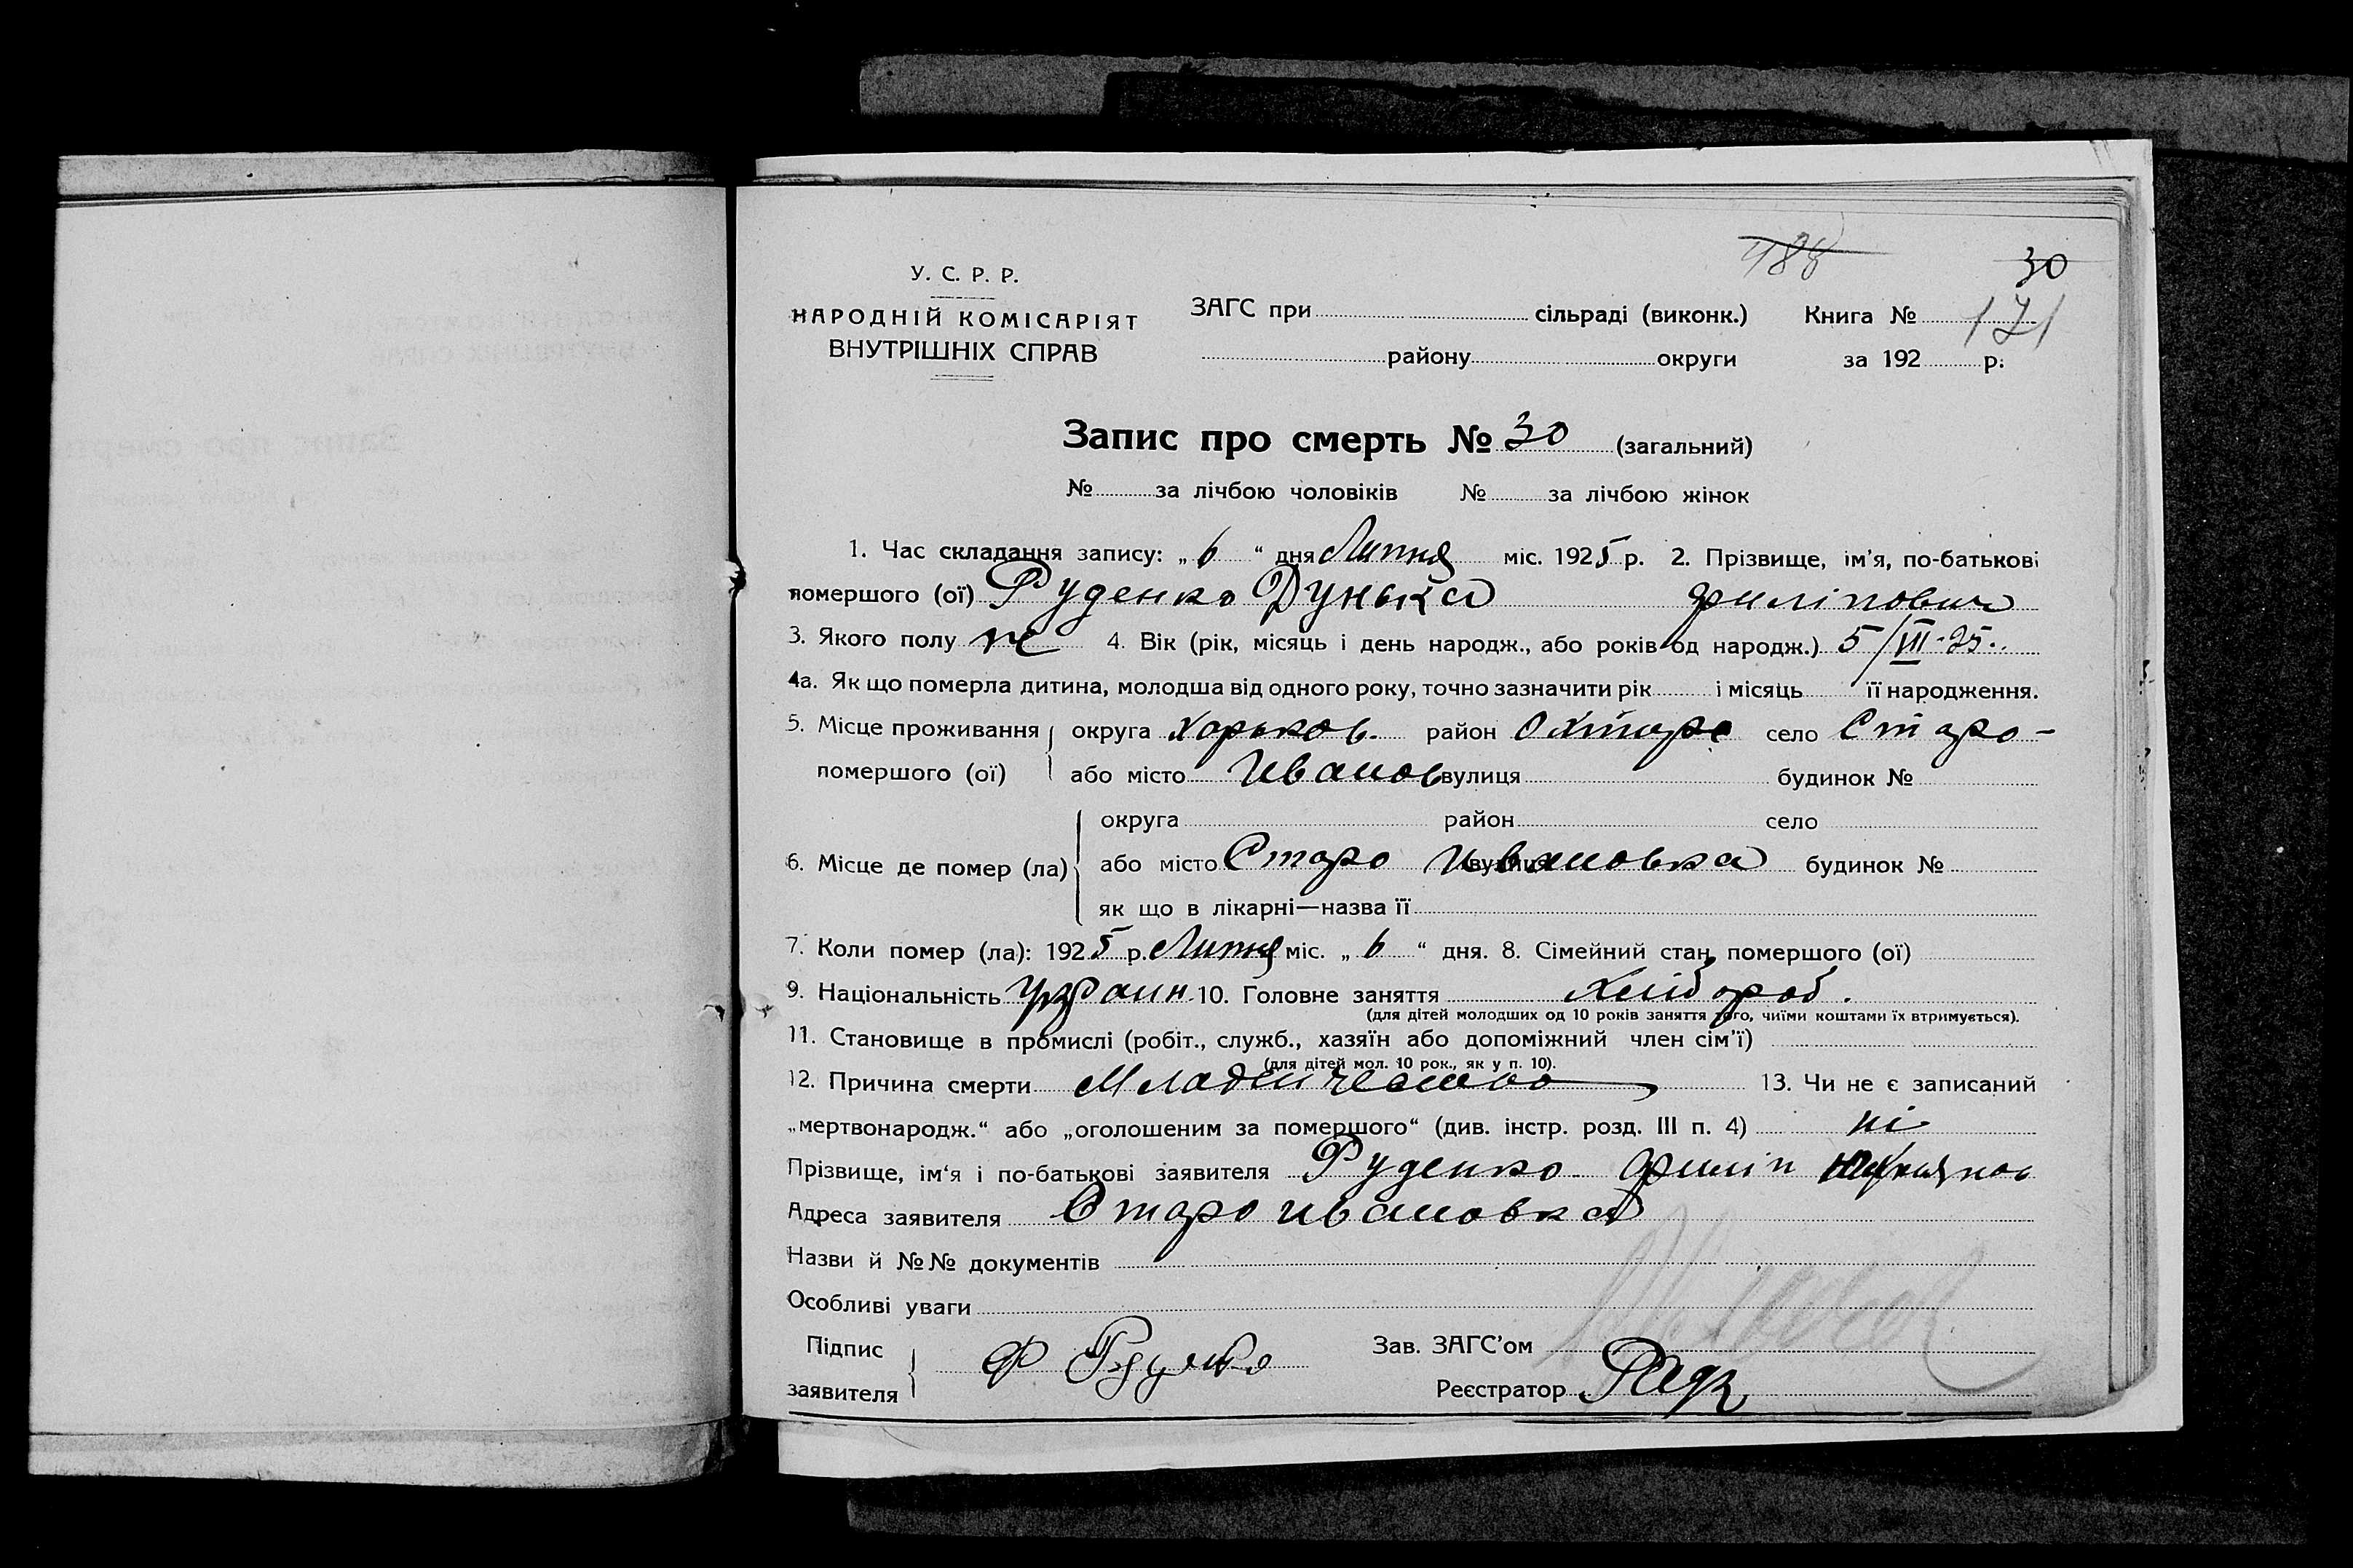 488 30
У. С. Р. Р.
НАРОДНІЙ КОМІСАРІЯТ ЗАГС при сільраді (виконк.) Книга № 171
ВНУТРІШНІХ СПРАВ району округи за 192 р.
Запис про смерть № 30 (загальний)
№ за лічбою чоловіків № за лічбою жінок
1. Час складання запису: „6“ дня Липня міс. 1925 р. 2. Прізвище, ім'я, по-батькові
помершого (ої) Руденко Дунька Филіповича
3. Якого полу ж 4. Вік (рік, місяць і день народж., або років од народж.) 5/VII-25.
4а. Як що померла дитина, молодша від одного року, точно зазначити рік і місяць її народження.
5. Місце проживання округа Харьков. район Охтирс село Старо-
помершого (ої) або місто Иванов вулиця будинок №
округа район село
6. Місце де помер (ла) або місто Старо Ивановка вулиця будинок №
як що в лікарні—назва її
7. Коли помер (ла): 1925 р. Липня міс. „6“ дня. 8. Сімейний стан помершого (ої)
9. Національність Украин. 10. Головне заняття Хлібороб.
(для дітей молодших од 10 років заняття того, чиїми коштами їх втримується).
11. Становище в промислі (робіт., служб., хазяїн або допоміжний член сім'ї)
(для дітей мол. 10 рок., як у п. 10).
12. Причина смерти Младенчество 13. Чи не є записаний
„мертвонародж.“ або „оголошеним за помершого“ (див. інстр. розд. III п. 4) ні
Прізвище, ім'я і по-батькові заявителя Руденко Филіп
Адреса заявителя Староивановка
Назви й №№ документів
Особливі уваги
Підпис Ф Руденко Зав. ЗАГС'ом
заявителя Реєстратор